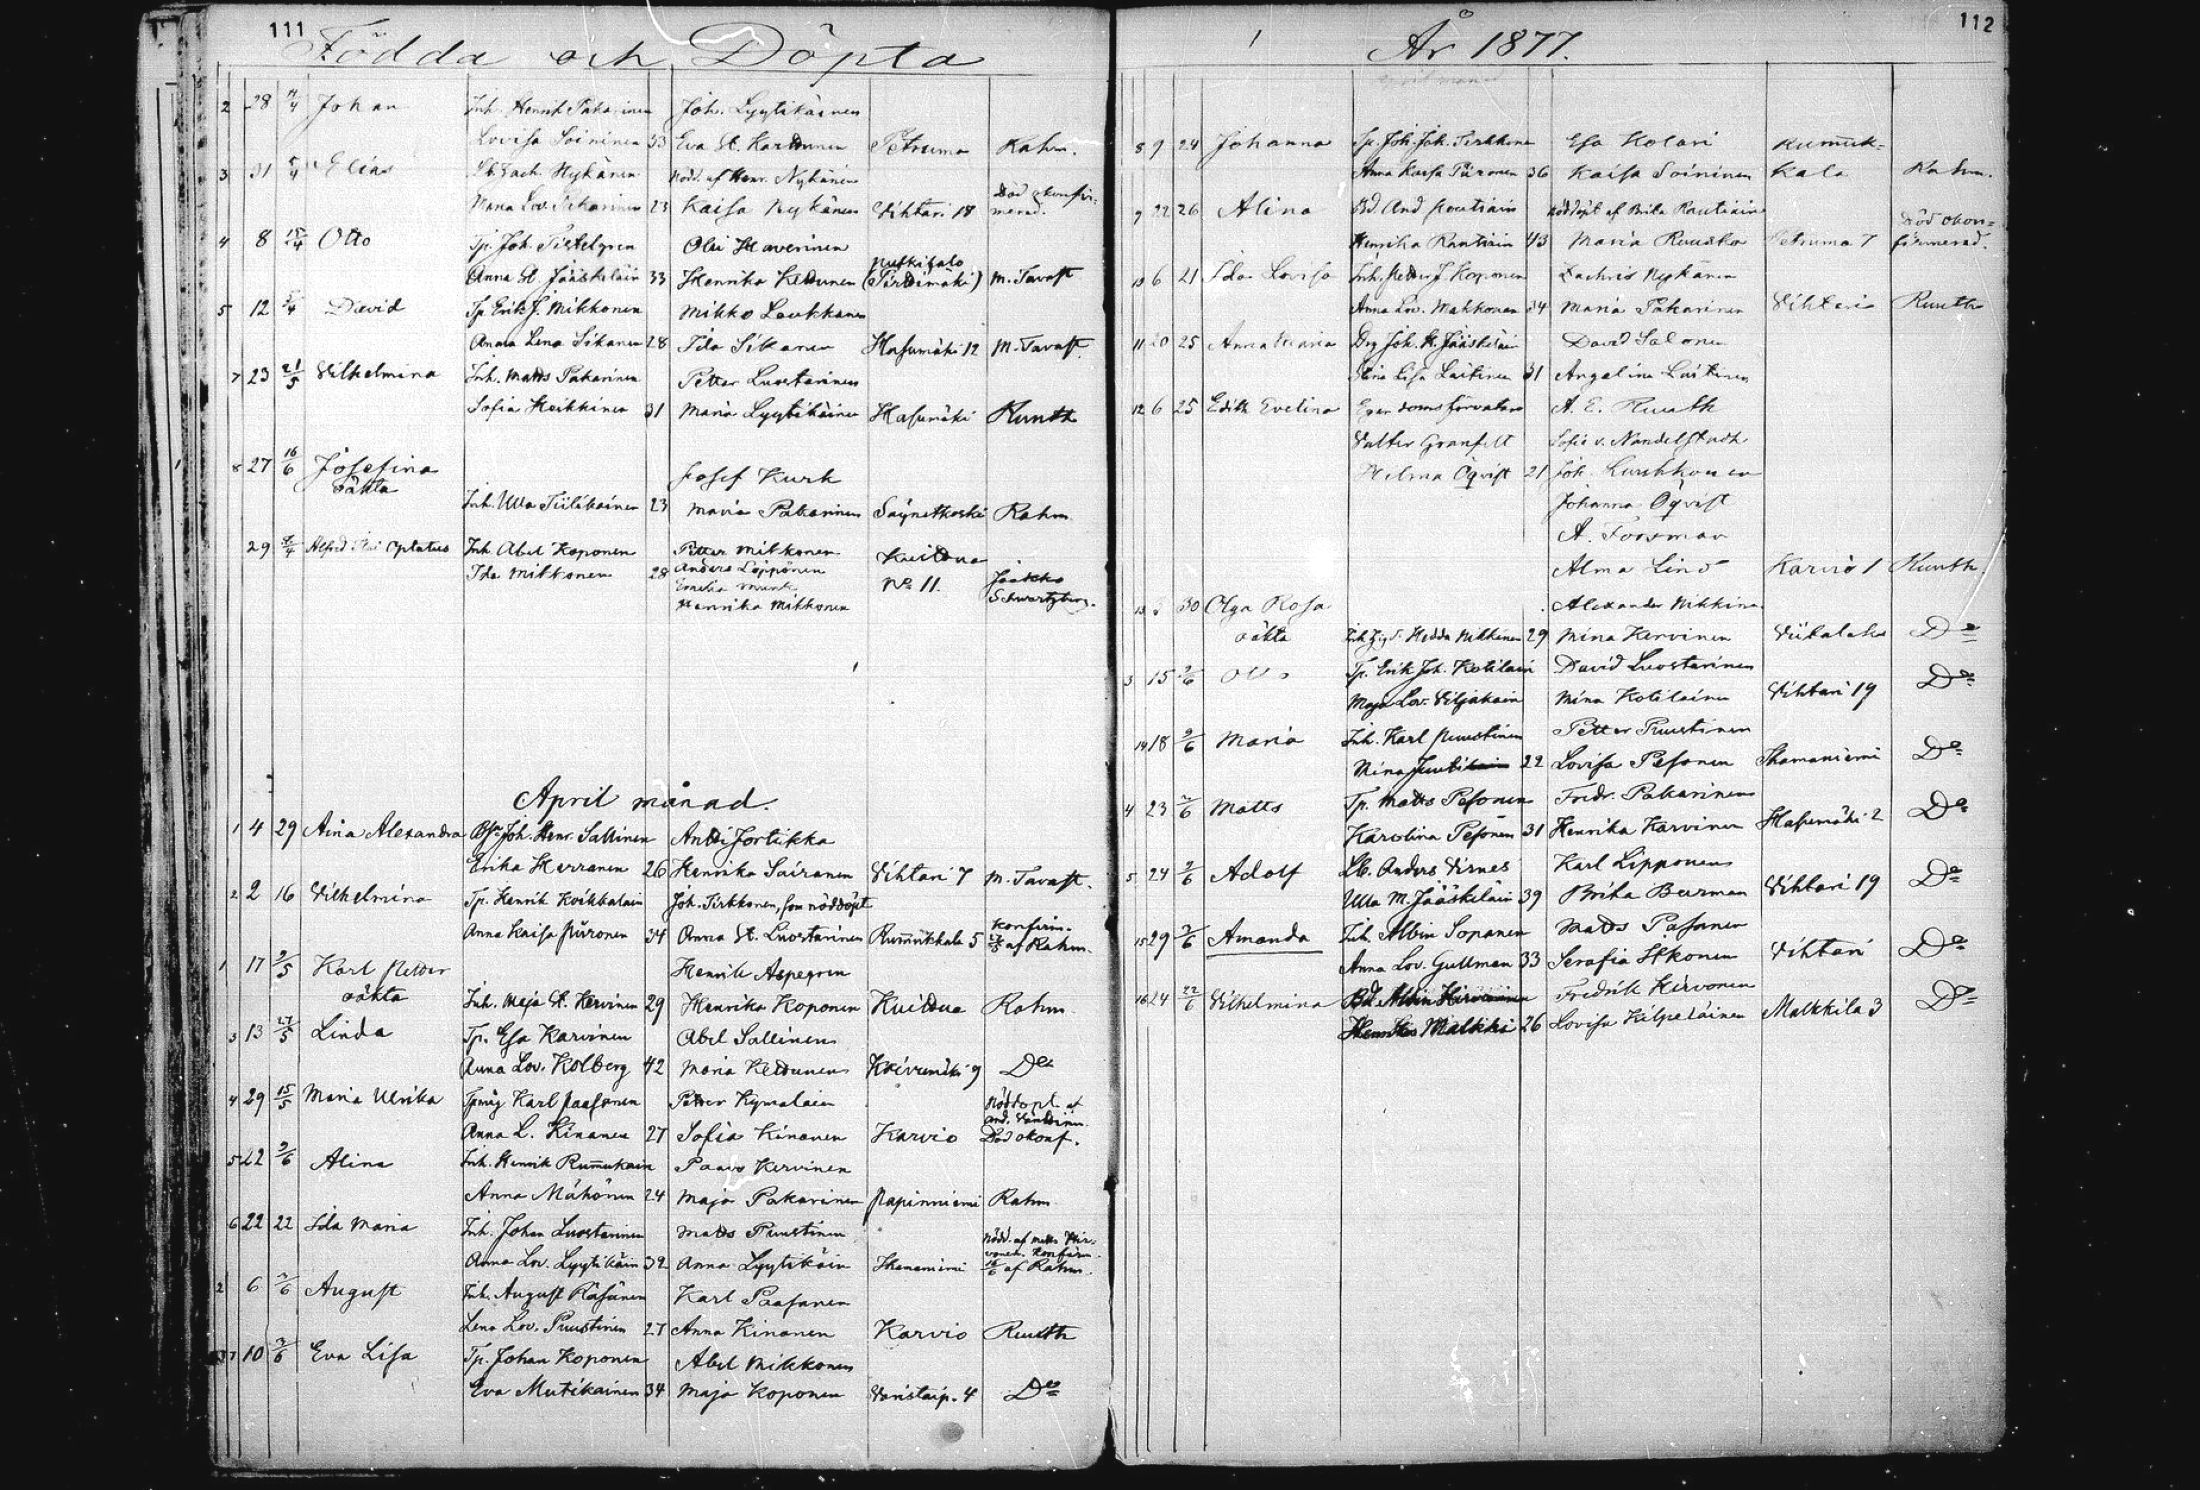 111
Födda och Döpta
2 28 11/4 Johan Inh. Henrik Pakarinen Joh. Lyytikäinen
Lovisa Soininen 33 Eva St. Karttunen Petruma Rahm.
3 31 5/4 Elias Lb. Zach. Nykänen Nödd. af Henr. Nykänen
Maria Lov. Pakarinen 23 Kaisa Nykänen Vihtari 18 Död okonfirmerad.
4 8 15/4 Otto Tp. Joh. Pistelgren Olli Haverinen
Anna St. Jääskeläin 33 Henrika Kettunen Putkisalo (Pirttimäki) M. Tavast
5 12 /4 David Tp. Erik J. Mikkonen Mikko Laukkanen
Anna Lena Sikanen 28 Iida Sikanen Hasumäki 12 M. Tavast.
7 23 21/5 Vilhelmina Inh. Matts Pakarinen Petter Luostarinen
Sofia Heikkinen 31 Maria Lyytikäinen Hasumäki Ruuth
8 27 16/6 Josefina Josef Kurk
oäkta Inh. Ulla Tiilikainen 23 Maria Pakarinen Säynetkoski Rahm
29 /4 Alfred Optatus Inh. Abel Koponen Petter Mikkonen Kuittua
Ida Mikkonen 28 Anders Löppönen No 11. Jaakko
Emelia Munk Schwartzberg.
Henrika Mikkonen
April månad.
1 4 29 Aina Alexandra Joh. Henr. Sallinen Antti Jortikka
Erika Herranen 26 Henrika Sairanen Vihtari 7 M. Tavast.
2 2 16 Vilhelmina Tp. Henrik Koikkalain Joh. Tirkkonen, som nöddöpt
Anna Kaisa Piironen 34 Anna St. Luostarinen Rummukkala 5 Konfirm. af Rahm.
1 17 2/5 Karl Petter Henrik Aspegren
oäkta Inh. Maja St. Kervinen 29 Henrika Koponen Kuittua Rahm.
3 13 27/5 Linda Tp. Esa Karvinen Abel Sallinen
Anna Lov. Kolberg 42 Maria Kettunen Koivumäki 9 Do
4 29 15/5 Maria Ulrika Karl Paasonen Petter Kymalain Nöddöpt. af
Anna L. Kinanen 27 Sofia Kinanen Karvio Död okonf.
5 22 3/6 Alina Inh. Henrik Rummukain Paavo Kervinen
Anna Mähönen 24 Maja Pakarinen Papinniemi Rahm.
6 22 22 Ida Maria Inh. Johan Luostarinen Matts Puustinen Nödd. af Matts Hirvonen. Konfirm.
Anna Lov. Lyytikäin 32 Anna Lyytikäin Ihamaniemi af Rahm.
2 6 3/6 August Inh. August Räsänen Karl Paasanen
Lena Lov. Puustinen 27 Anna Kinanen Karvio Ruuth
7 10 3/6 Eva Lisa Tp. Johan Koponen Abel Mikkonen
Eva Mutikainen 34 Maja Koponen Varistaip. 4 Do
112
År 1877.
April månad
8 9 24 Johanna Tp. Joh. Joh. Tirkkonen Esa Holari Rummuk-
Anna Kaisa Piironen 36 Kaisa Soininen kala Rahm.
9 22 26 Alina Bd. And. Rautiain Nöddöpt af Brita Rautiain Död okon-
Henrika Rantisin 43 Maria Ruusko Petruma 7 firmerad.
10 6 21 Ida Lovisa Inh. Petter J. Koponen Zachris Nykänen
Anna Lov. Makkonen 34 Maria Pakarinen Vihtari Ruuth
11 20 25 Anna Maria Drg Joh. H. Jääskeläin David Salonen
Stina Lisa Laitinen 31 Angelina Laitinen
12 6 25 Edith Evelina Egendomsförvaltare A. E. Ruuth
Valter Granfelt Sofie v. Nandelstadh
Helma Öqvist 21 Joh. Luukkonen
Johanna Öqvist
A. Forsman
Alma Lind Karvio 1 Ruuth.
13 30 Olga Rosa Alexander Nikkinen
oäkta Hedda Nikkinen 29 Mina Kervinen Viitalaks Do
3 15 3/6 Otto Tp. Erik Joh. Kotilain David Luostarinen
Maja Lov. Viljakain Mina Kotilainen Vihtari 19 Do
14 18 3/6 Maria Inh. Karl Puustinen Petter Puustinen
Mina 22 Lovisa Pesonen Ihamaniemi Do
4 23 3/6 Matts Tp. Matts Pesonen Fredr. Pakarinen
Karolina Pesonen 31 Henrika Karvinen Hasumäki 2 Do
5 24 3/6 Adolf Lb. Anders Virnes Karl Lipponen
Ulla M. Jääskeläin 39 Brita Burman Vihtari 19 Do
15 29 3/6 Amanda Inh. Albin Sopanen Matts Pasanen
Anna Lov. Gullman 33 Serafia Ikonen Vihtari Do
16 24 22/6 Vilhelmina Bd. Albin Hirvonen Fredrik Hirvonen
Henrika Malkki 26 Lovisa Kilpeläinen Malkkila 3 Do